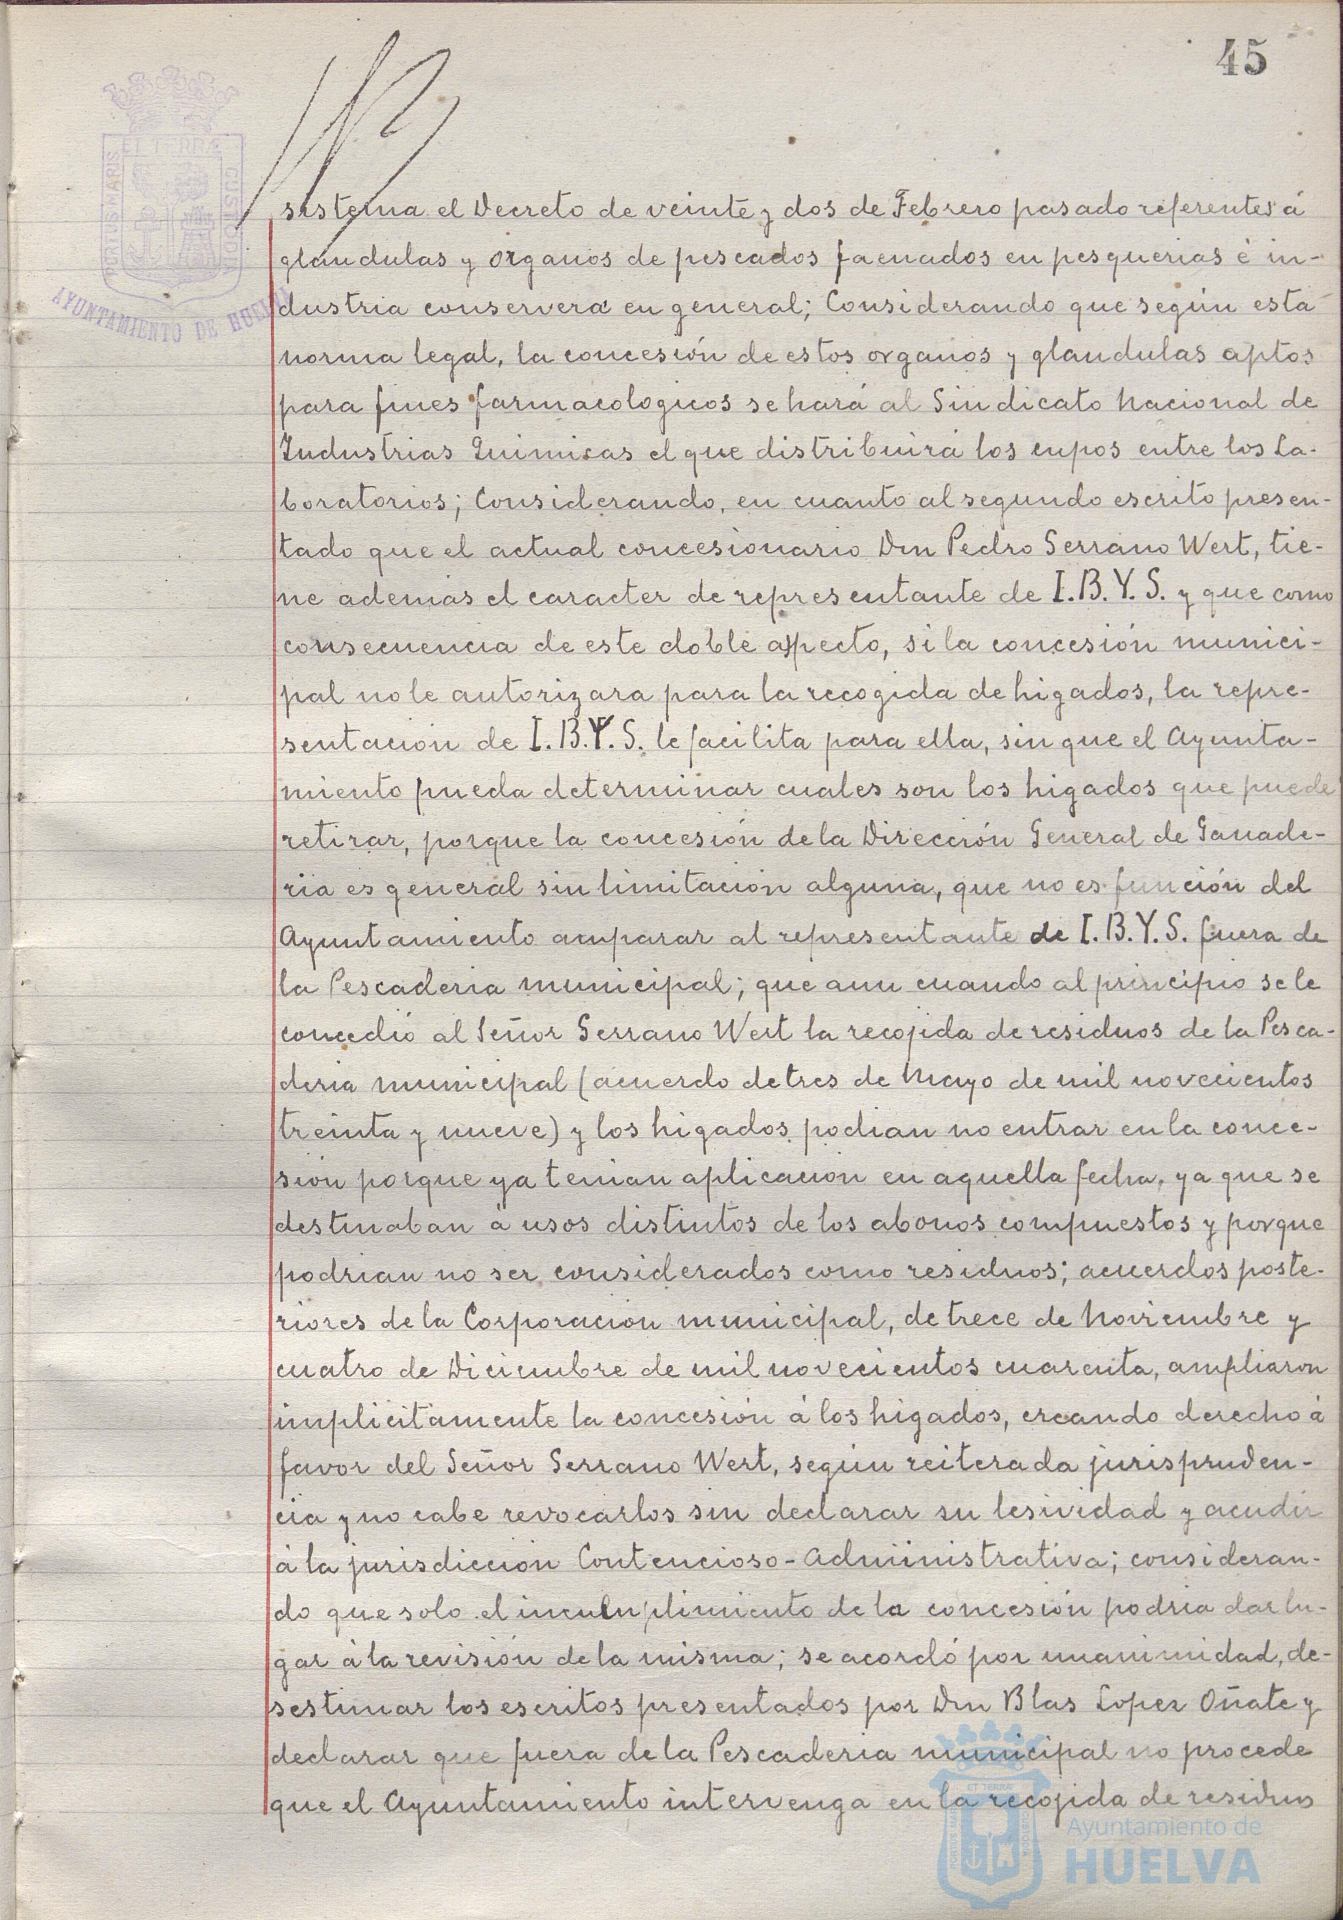 45
PORTUS MARIS ET TERRÆ CUSTODIA
AYUNTAMIENTO DE HUELVA
sistema el Decreto de veinte y dos de Febrero pasado referentes á
glandulas y organos de pescados faenados en pesquerias é in-
dustria conservera en general; Considerando que según esta
norma legal, la concesión de estos organos y glandulas aptos
para fines farmacologicos se hará al Sindicato Nacional de
Industrias Quimicas el que distribuirá los cupos entre los La-
boratorios; Considerando, en cuanto al segundo escrito presen-
tado que el actual concesionario Don Pedro Serrano Wert, tie-
ne ademas el caracter de representante de I.B.Y.S. y que como
consecuencia de este doble aspecto, si la concesión munici-
pal no le autorizara para la recogida de higados, la repre-
sentación de I.B.Y.S. le facilita para ella, sin que el Ayunta-
miento pueda determinar cuales son los higados que puede
retirar, porque la concesión de la Dirección General de Ganade-
ria es general sin limitación alguna, que no es función del
Ayuntamiento amparar al representante de I.B.Y.S. fuera de
la Pescaderia municipal; que aun cuando al principio se le
concedió al Señor Serrano Wert la recojida de residuos de la Pesca-
deria municipal (acuerdo de tres de Mayo de mil novecientos
treinta y nueve) y los higados podian no entrar en la conce-
sión porque ya tenian aplicación en aquella fecha, ya que se
destinaban á usos distintos de los abonos compuestos y porque
podrian no ser considerados como residuos; acuerdos poste-
riores de la Corporación municipal, de trece de Noviembre y
cuatro de Diciembre de mil novecientos cuarenta, ampliaron
implicitamente la concesión á los higados, creando derecho á
favor del Señor Serrano Wert, según reiterada jurispruden-
cia y no cabe revocarlos sin declarar su lesividad y acudir
á la jurisdicción Contencioso-Administrativa; consideran-
do que solo el incumplimiento de la concesión podria dar lu-
gar á la revisión de la misma; se acordó por unanimidad, de-
sestimar los escritos presentados por Don Blas Lopez Oñate y
declarar que fuera de la Pescaderia municipal no procede
que el Ayuntamiento intervenga en la recojida de residuos
Ayuntamiento de
HUELVA